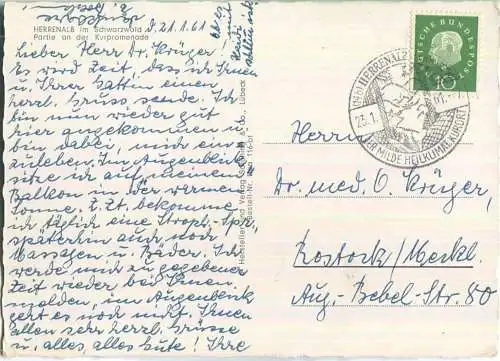 HERRENALB im Schwarzwald
Partie an der Kurpromenade
d. 21.1.61
Lieber Herr Dr. Krüger!
Es wird Zeit, dass ich Ihnen
u. Ihrer Gattin einen
herzl. Gruss sende. Ich
bin nun wieder gut
hier angekommen u.
bin dabei, mich ein-
zuleben. Im Augenblick
sitze ich auf meinem
Balkon in der warmen
Sonne. Z. Zt. bekomme
ich täglich eine Stroph.-Spr.,
später dann auch noch
Massagen u. Bäder. Ich
werde mich zu gegebener
Zeit wieder bei Ihnen
melden, im Augenblick
geht es noch nicht. Ihnen
allen sehr herzl. Grüsse
u. alles, alles Gute! Ihre
Lübeck
DEUTSCHE BUNDESPOST
10
HERRENALB
23.1.
61.
DER MILDE HEILKLIMAKURORT
Herrn
Dr. med. O. Krüger,
Rostock/Meckl.
Aug.-Bebel-Str. 80